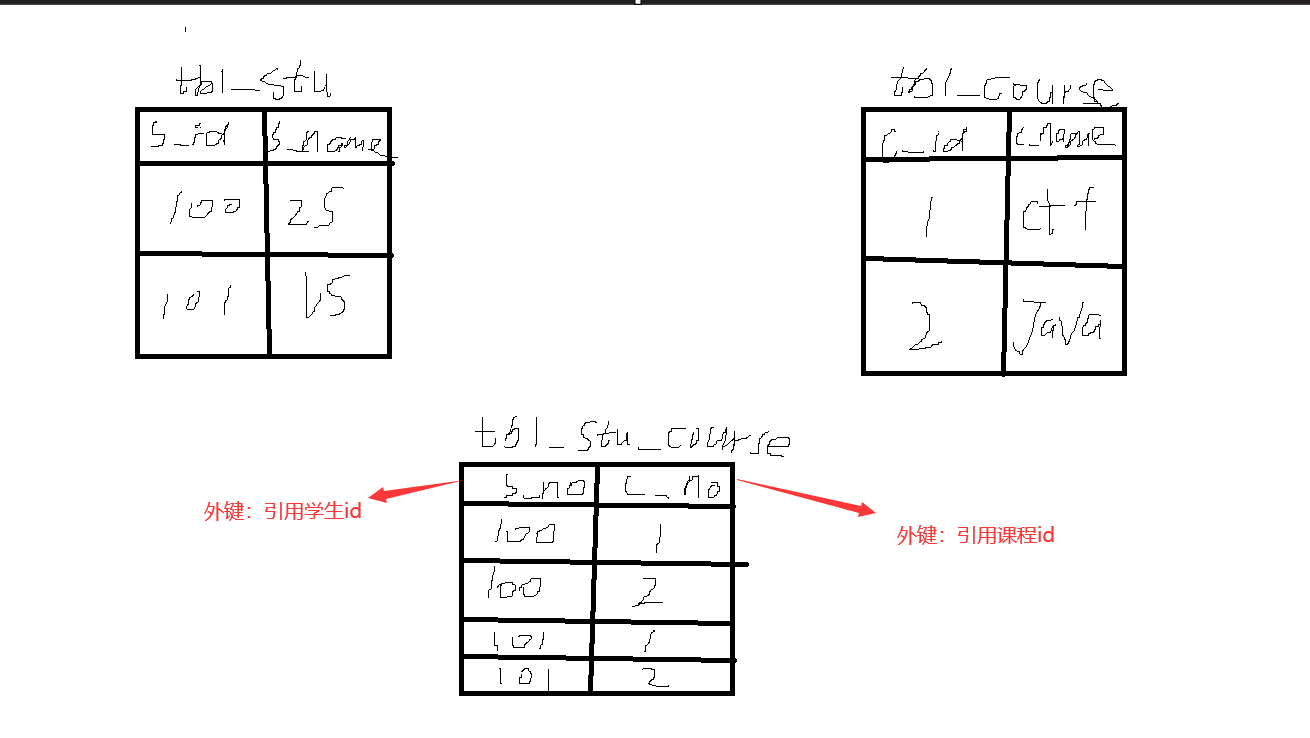 tbl_stu
s_id s_name
100 zs
101 ls
tbl_course
c_id c_name
1 c++
2 Java
tbl_stu_course
s_no c_no
100 1
100 2
101 1
101 2
外键：引用学生id
外键：引用课程id